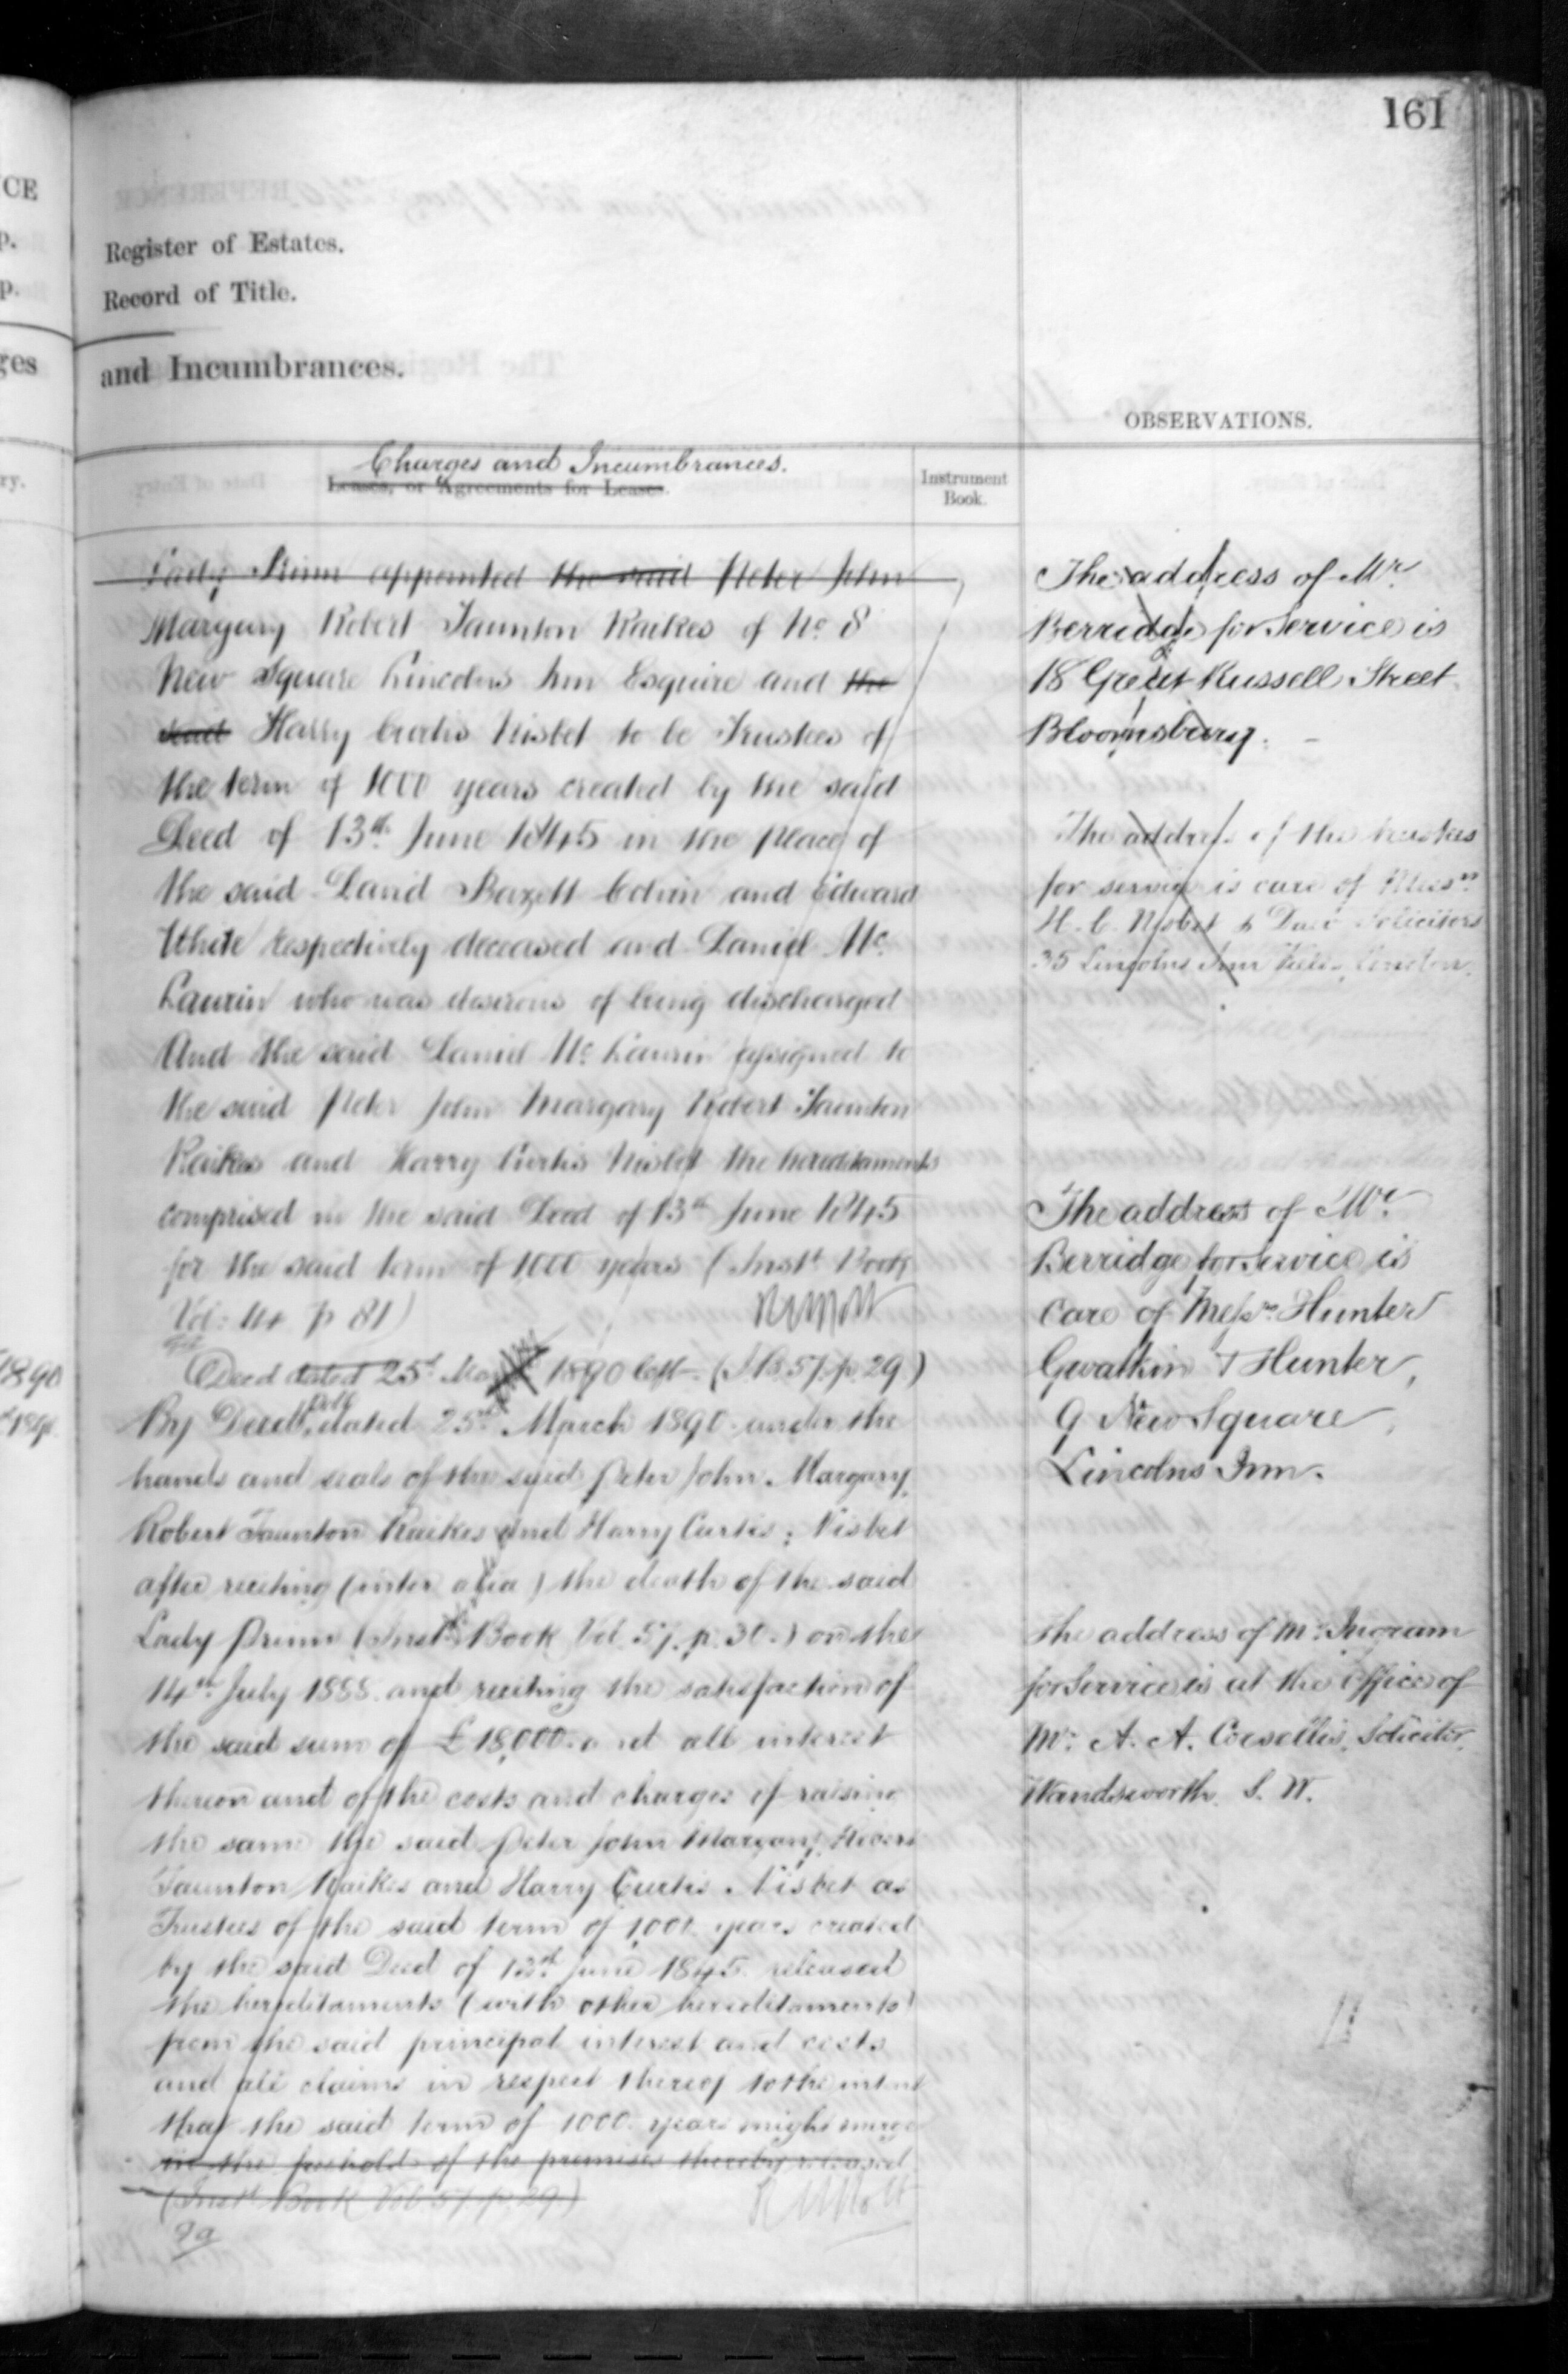 161
Register of Estates.
Record of Title.
and Incumbrances.
OBSERVATIONS.
Charges and Incumbrances.
Leases, or Agreements for Leases.
Instrument
Book.
Lady Prinn appointed the said Peter John
Margary Robert Taunton Raikes of No. 8
New Square Lincolns Inn Esquire and the
said Harry Curtis Nisbet to be Trustees of
the term of 1000 years created by the said
Deed of 13th June 1845 in the place of
the said David Bazett Colvin and Edward
White respectively deceased and Daniel Mc
Laurin who was desirous of being discharged
And the said Daniel Mc Laurin assigned to
the said Peter John Margary Robert Taunton
Raikes and Harry Curtis Nisbet the hereditaments
comprised in the said Deed of 13th June 1845
for the said term of 1000 years (Inst. Book
Vol: 44 p 81)
Deed dated 25th 1890 left (I.B. 57. p. 29)
By Deed Poll dated 25th March 1890 under the
hands and seals of the said Peter John Margary
Robert Taunton Raikes and Harry Curtis Nisbet
after reciting (inter alia) the death of the said
Lady Prinn (Inst. Book Vol. 57. p. 30.) on the
14th July 1888 and reciting the satisfaction of
the said sum of £18,000 and all interest
thereon and of the costs and charges of raising
the same the said Peter John Margary Robert
Taunton Raikes and Harry Curtis Nisbet as
Trustees of the said term of 1,000 years created
by the said Deed of 13th June 1845 released
the hereditaments (with other hereditaments)
from the said principal interest and costs
and all claims in respect thereof to the intent
that the said term of 1000 years might merge
in the freehold of the premises thereby released
(Inst. Book Vol. 57 p. 29)
The address of Mr.
Berridge for Service is
18 Great Russell Street
Bloomsbury.
The address of the trustees
for service is care of Messrs
H. C. Nisbet & Daw Solicitors
35 Lincolns Inn Fields London.
The address of Mr.
Berridge for Service is
care of Messrs. Hunter
Gwatkin & Hunter,
9 New Square,
Lincolns Inn.
The address of Mr. Ingram
for Service is at the Office of
Mr. A. A. Corsellis, Solicitor,
Wandsworth. S. W.